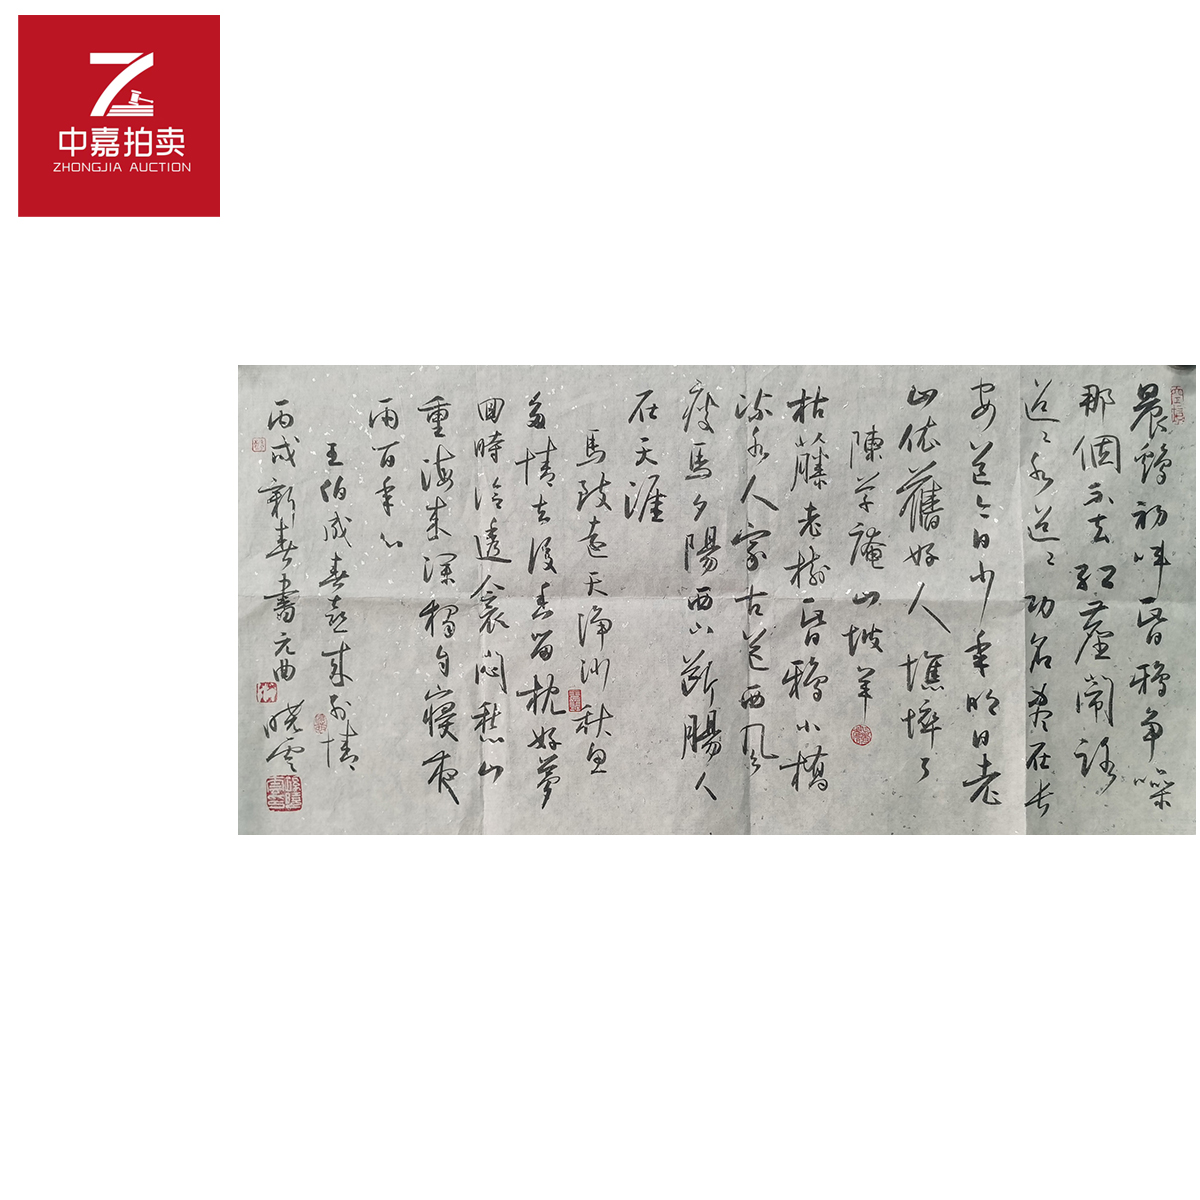 中嘉拍卖
ZHONGJIA AUCTION
晨鷄初叫昏鴉争噪
那個不去紅塵鬧路
迢〻水迢〻功名盡在長
安道今日少年明日老
山依舊好人憔悴了
陳草庵山坡羊
枯藤老樹昏鴉小橋
流水人家古道西風
瘦馬夕陽西下斷腸人
在天涯
馬致遠天淨沙秋思
多情去後香留枕好夢
回時冷透衾悶愁山
重海來深獨自寢夜
雨百年心
王伯成春喜來別情
丙戌新春書元曲
曉雲